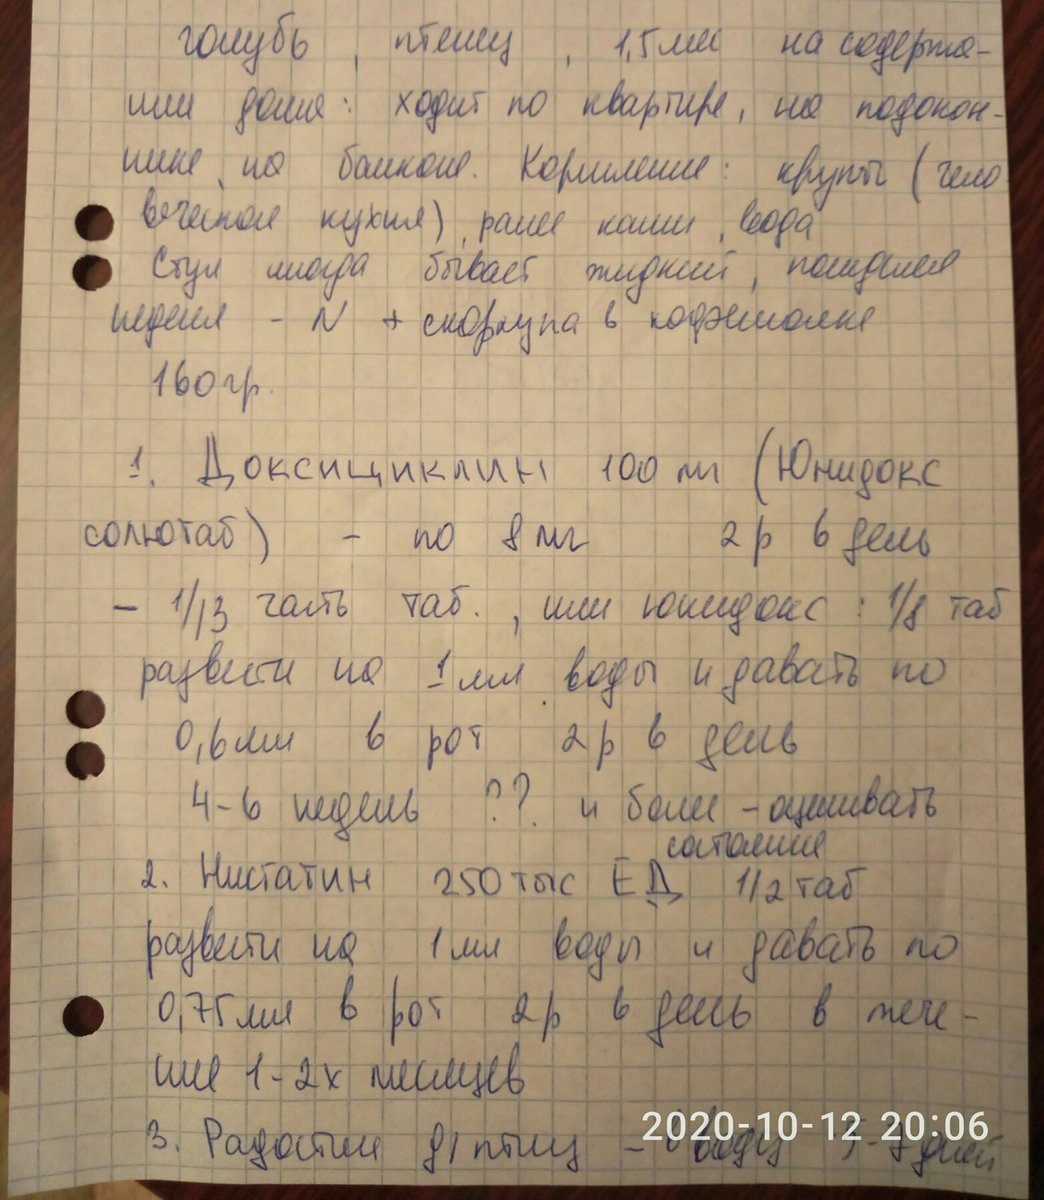 голубь, птенец, 1,5 мес на содержа-
нии дома: ходит по квартире, на подокон-
нике, на балконе. Кормление: крупы (чело
веческая кухня), ранее каши, вода
Стул иногда бывает жидкий, последняя
неделя - N + скорлупа в кофемолке
160 гр.
1. Доксициклин 100 мг (Юнидокс
солютаб) - по 8 мг 2 р в день
- 1/13 часть таб., или юнидокс: 1/8 таб
развести на 1 мл воды и давать по
0,6 мл в рот 2 р в день
4-6 недель ?? и более - оценивать
состояние
2. Нистатин 250 тыс ЕД 1/2 таб
развести на 1 мл воды и давать по
0,75 мл в рот 2 р в день в тече-
ние 1-2х месяцев
3. Радостин д/птиц - в воду дней
2020-10-12 20:06